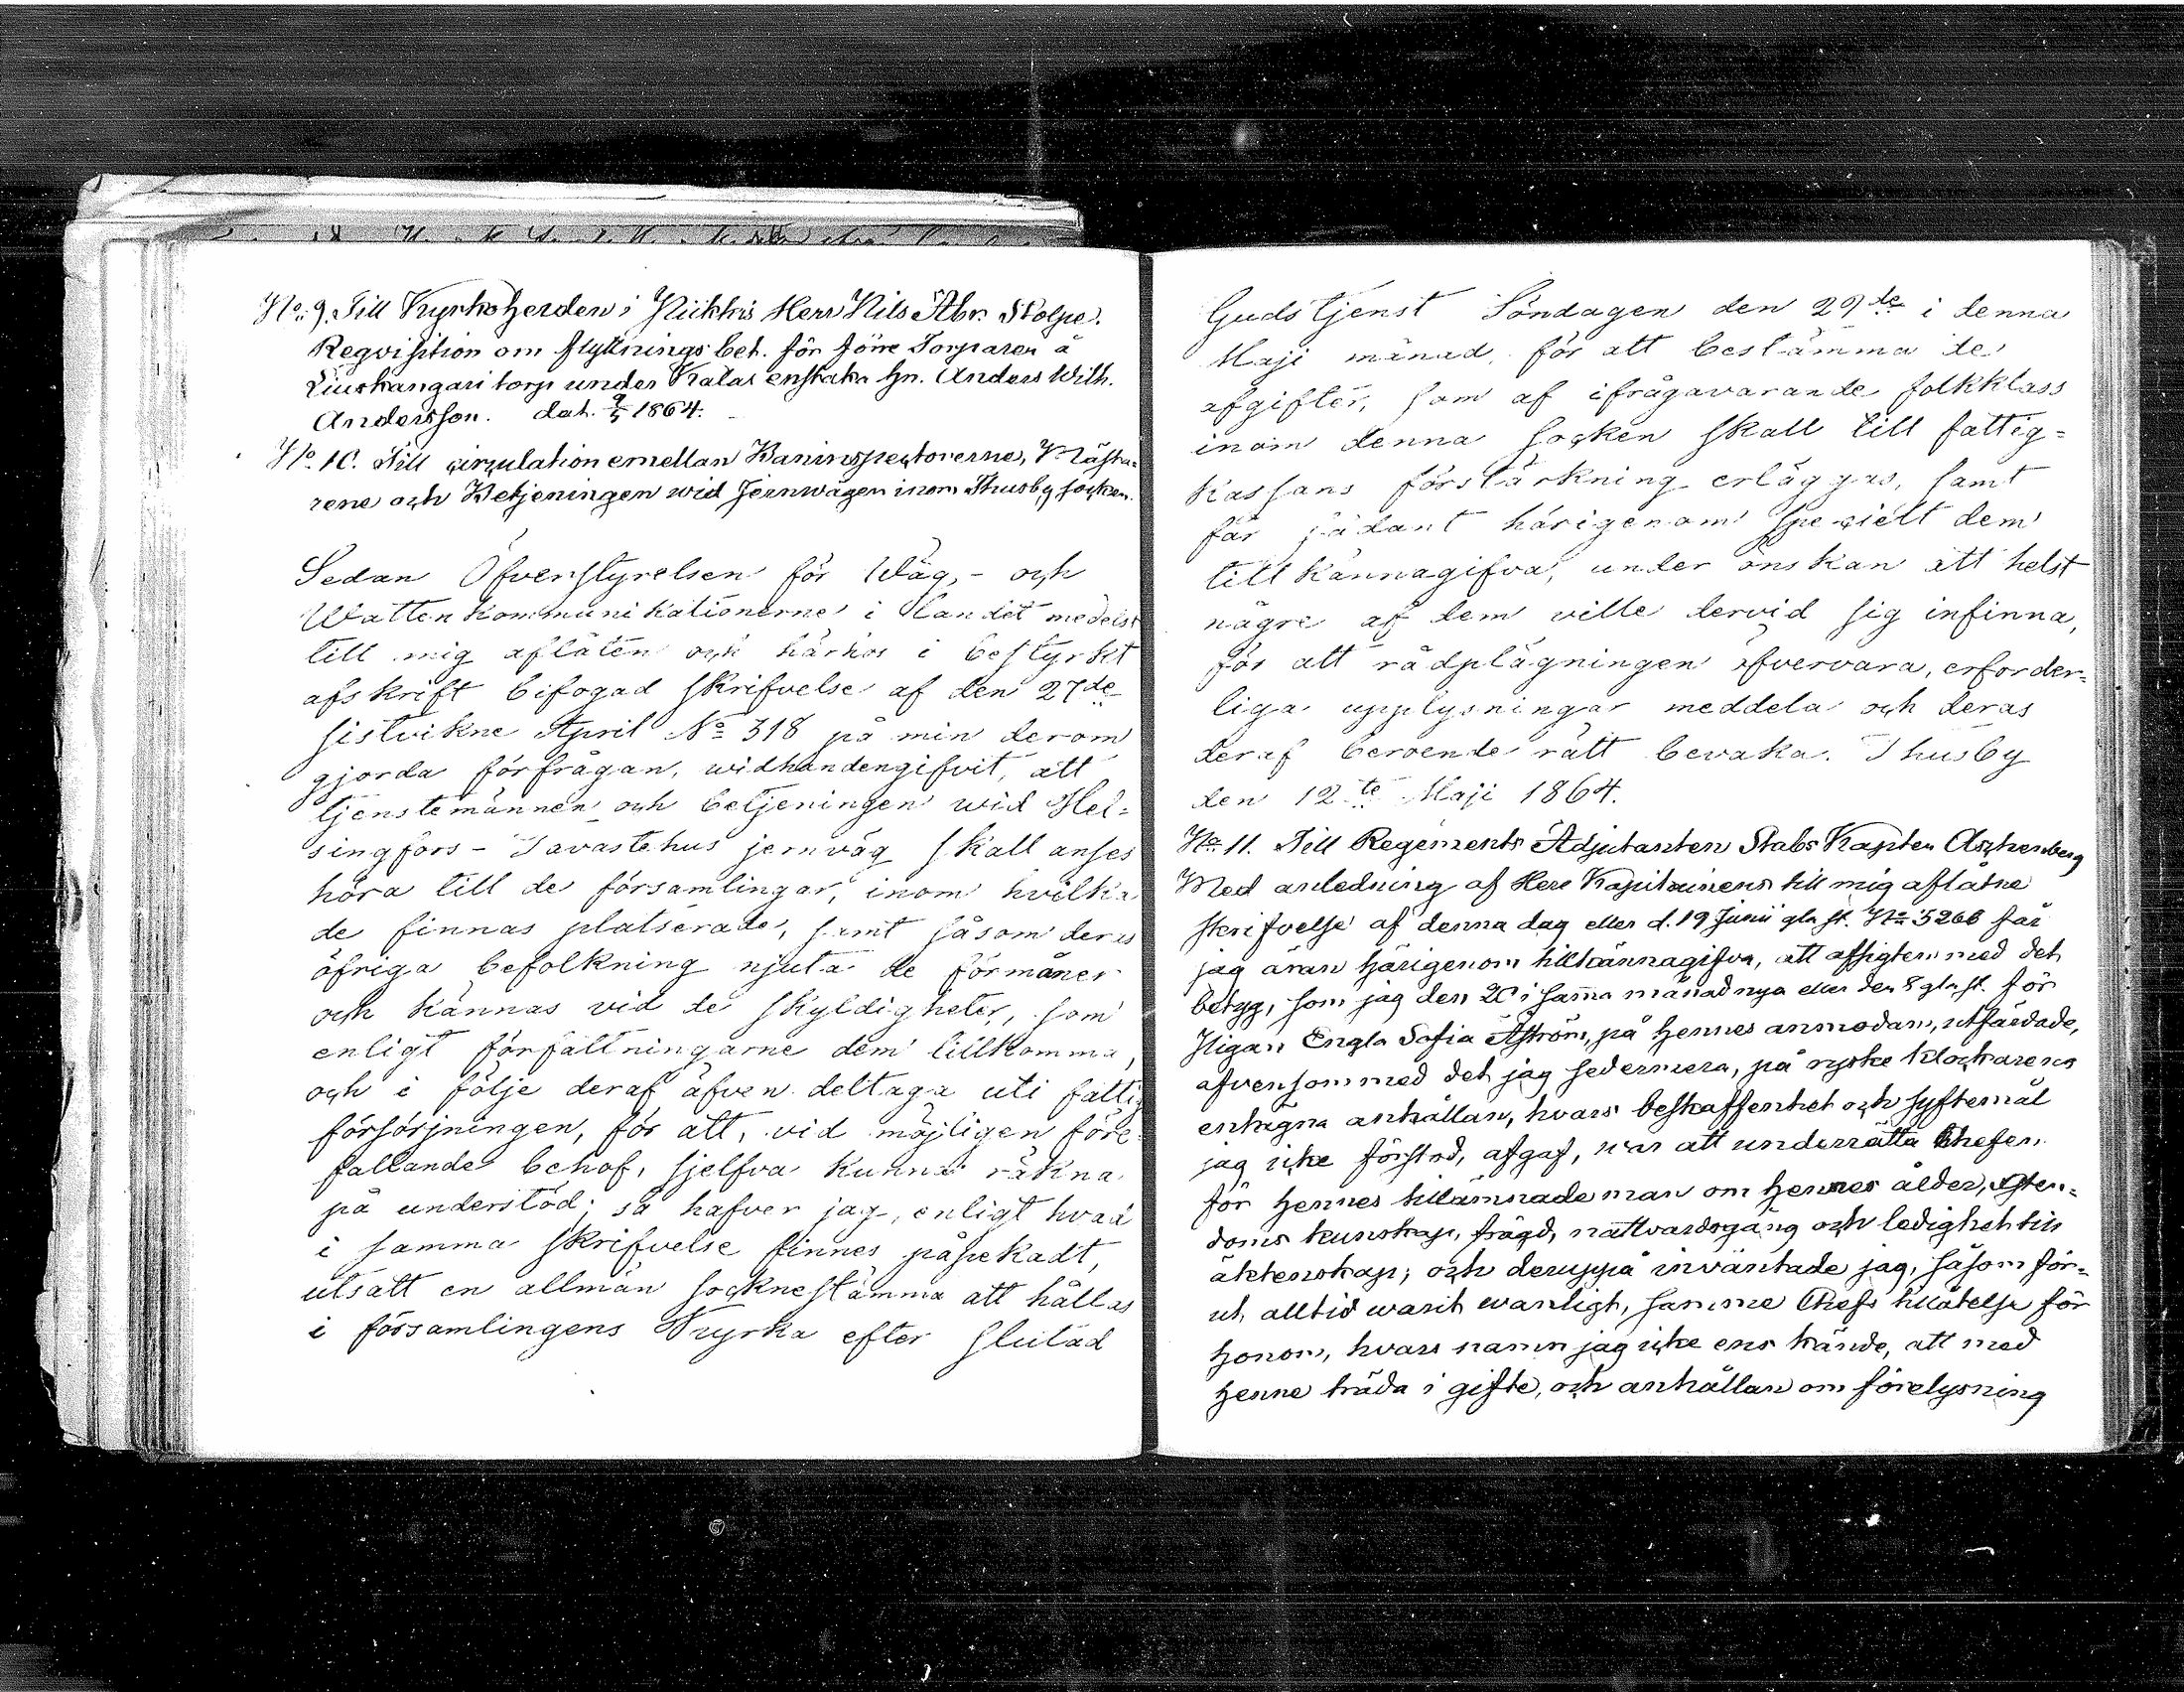 No. 9. Till Kyrkoherden i Kiikkis Herr Nils Abr. Stolpe.
Reqvisition om flyttningsbet. för förre Torparen å
Liuskangari torp under Kalas enstaka hn. Anders Wilh.
Andersson. dat. 9/5 1864.
No. 10. Till circulation emellan Baninspectorerne, Mästa-
rene och Betjeningen wid Jernwägen inom Thusby socken.
Sedan Öfverstyrelsen för Wäg,- och
Wattenkommunikationerne i landet medelst
till mig aflåten och härhos i bestyrkt
afskrift bifogad skrifvelse af den 27de
sistvikne April No 318 på min derom
gjorda förfrågan, widhandengifvit, att
tjenstemännen och betjeningen wid Hel-
singfors-Tavastehus jernväg skall anses
höra till de församlingar, inom hvilka
de finnas platserade, samt såsom deras
öfriga befolkning njuta de förmåner
och kännas vid de skyldigheter, som
enligt författningarne dem tillkomma,
och i följe deraf äfven deltaga uti fattig
försörjningen, för att, vid möjligen före-
fallande behof, sjelfva kunna räkna
på understöd; så hafver jag, enligt hvad
i samma skrifvelse finnes påpekadt,
utsatt en allmän socknestämma att hållas
i församlingens Kyrka efter slutad
Gudstjenst Söndagen den 29de i denna
Maji månad, för att bestämma de
afgifter, som af ifrågavarande folkklass
inom denna socken skall till fattig-
kassans förstärkning erläggas, samt
får sådant härigenom specielt dem
tillkännagifva, under önskan att helst
någre af dem ville dervid sig infinna,
för att rådplägningen öfvervara, erforder-
liga upplysningar meddela och deras
deraf beroende rätt bevaka. Thusby
den 12te Maji 1864.
No. 11. Till Regements Adjutanten Stabs Kapten Aschenberg
Med anledning af Herr Kapitainens till mig aflåtne
skrifvelse af denna dag eller d. 19 Junii gla st. No 5266 får
jag äran härigenom tillkännagifva, att afsigten med det
betyg, som jag den 20 i samma månad nya eller den 8 gla st. för
Pigan Engla Sofia Åström, på hennes anmodan, utfärdade,
äfvensom med det jag sedermera, på ryske klockarens
enträgna anhållan, hvars beskaffenhet och syftemål
jag icke förstod, afgaf, war att underrätta Chefen
för hennes tillämnade man om hennes ålder, cristen-
doms kunskap, frägd, nattvardsgång och ledighet till
äktenskap; och deruppå inväntade jag, såsom för-
ut, alltid warit wanligt, samme Chefs tillåtelse för
honom, hvars namn jag icke ens kände, att med
henne träda i gifte, och anhållan om förelysning